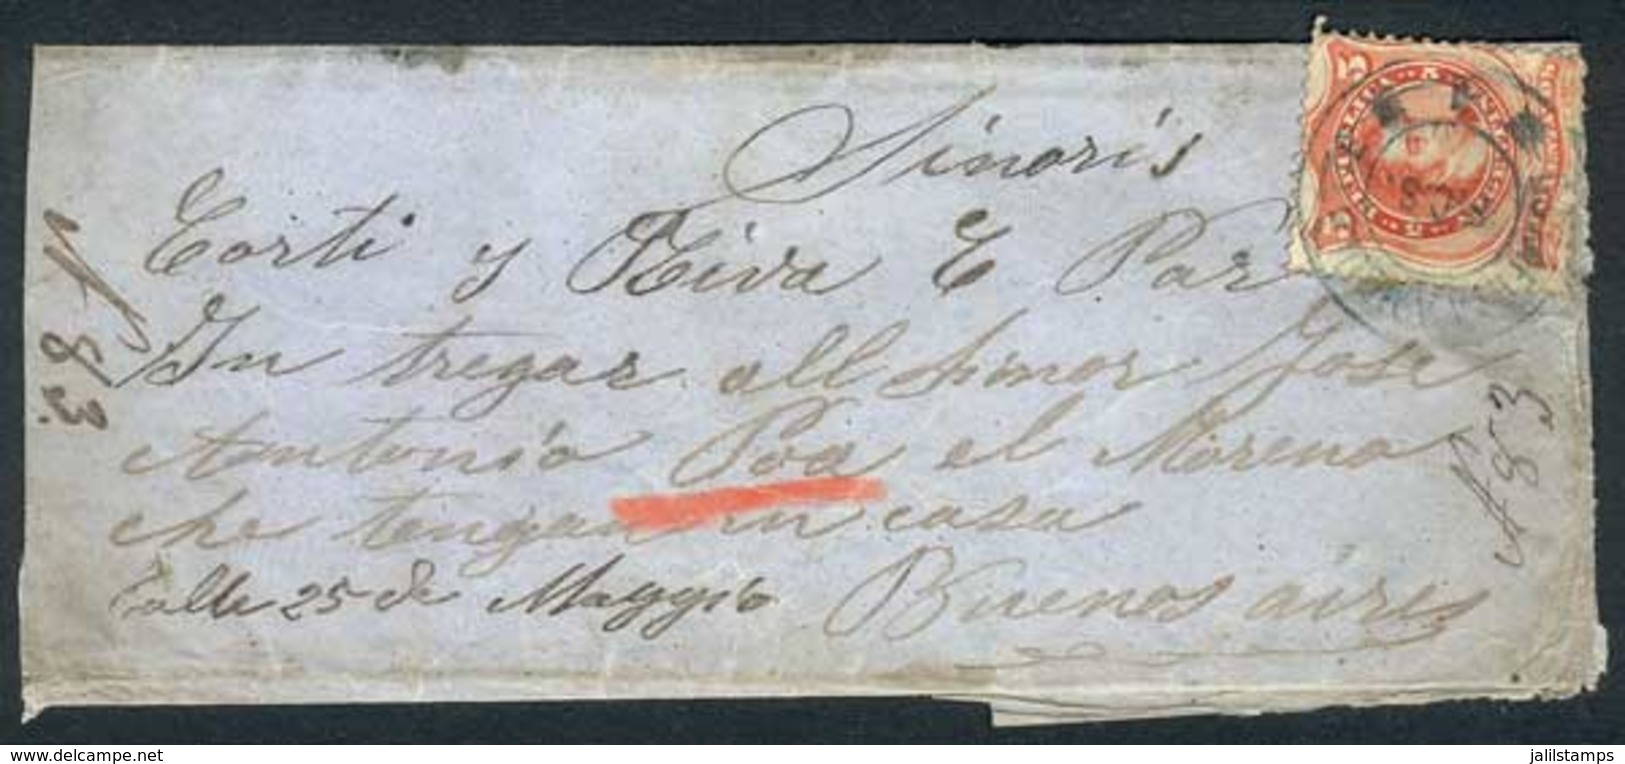 Sinoris
Corti y Riva E Par
In tregar all Sinor Jose
Antonio Poa el Moreno
che tengan in casa
Calle 25 de Maggio Buenos aires
N 83
N 83
5
www.delcampe.net
jalilstamps